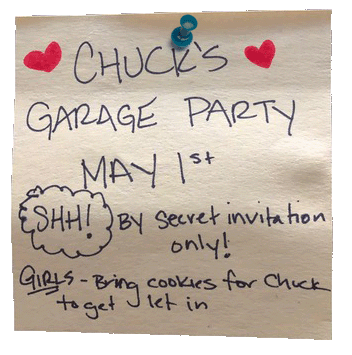 CHUCK'S
GARAGE PARTY
MAY 1st
SHH! BY secret invitation
only!
GIRLS - Bring cookies for Chuck
to get let in